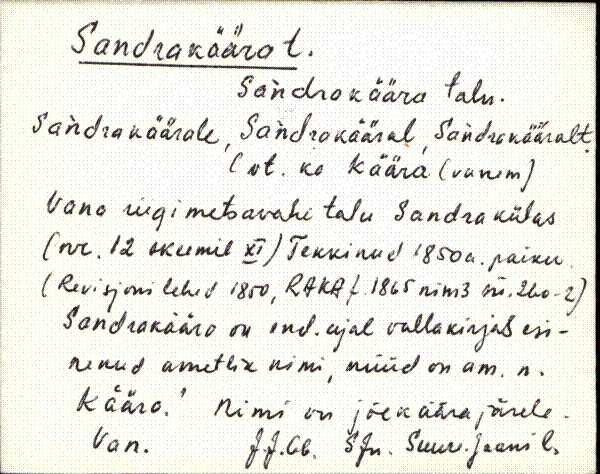 Sandrakääro t.
Sàndrokääro talu.
Sàndrakäärole, Sàndrokääral, Sàndrokääralt.
(vt. ka Käära (vanem)
Vana riigimetsavahi talu Sandrakülas
(nr. 12 skeemil XI) Tekkinud 1850 a. paiku.
(Revisjoni lehed 1850, RAKA f. 1865 nim3 sü. 260-2)
Sandrakääro on end. ajal vallakirjas esi-
nenud ametlik nimi, nüüd on am. n.
Kääro." Nimi on jõekäära järele.
Van. J.J.Gb. SJn. Suure-Jaani l.